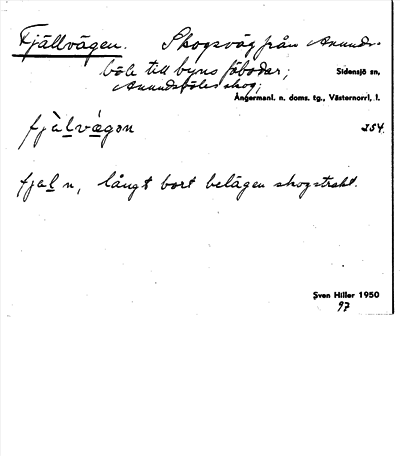 Fjällvägen. Skogsväg från Anunds-
böle till byns fäbodar; Sidensjö sn,
Anundsböles skog;
Ångermanl. n. doms. tg., Västernorrl. l.
fjàlvágən 254.
fjal n, långt bort belägen skogstrakt.
Sven Hiller 1950
97